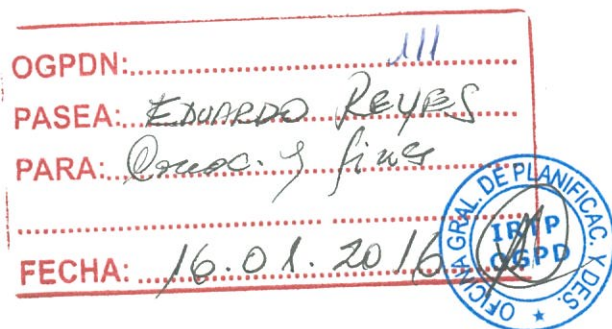 OGPDN: 111
PASEA: EDUARDO REYES
PARA: Conoc. y fines
FECHA: 16.01.2016
OFICINA GRAL. DE PLANIFICAC. Y DES.
IRTP
OGPD